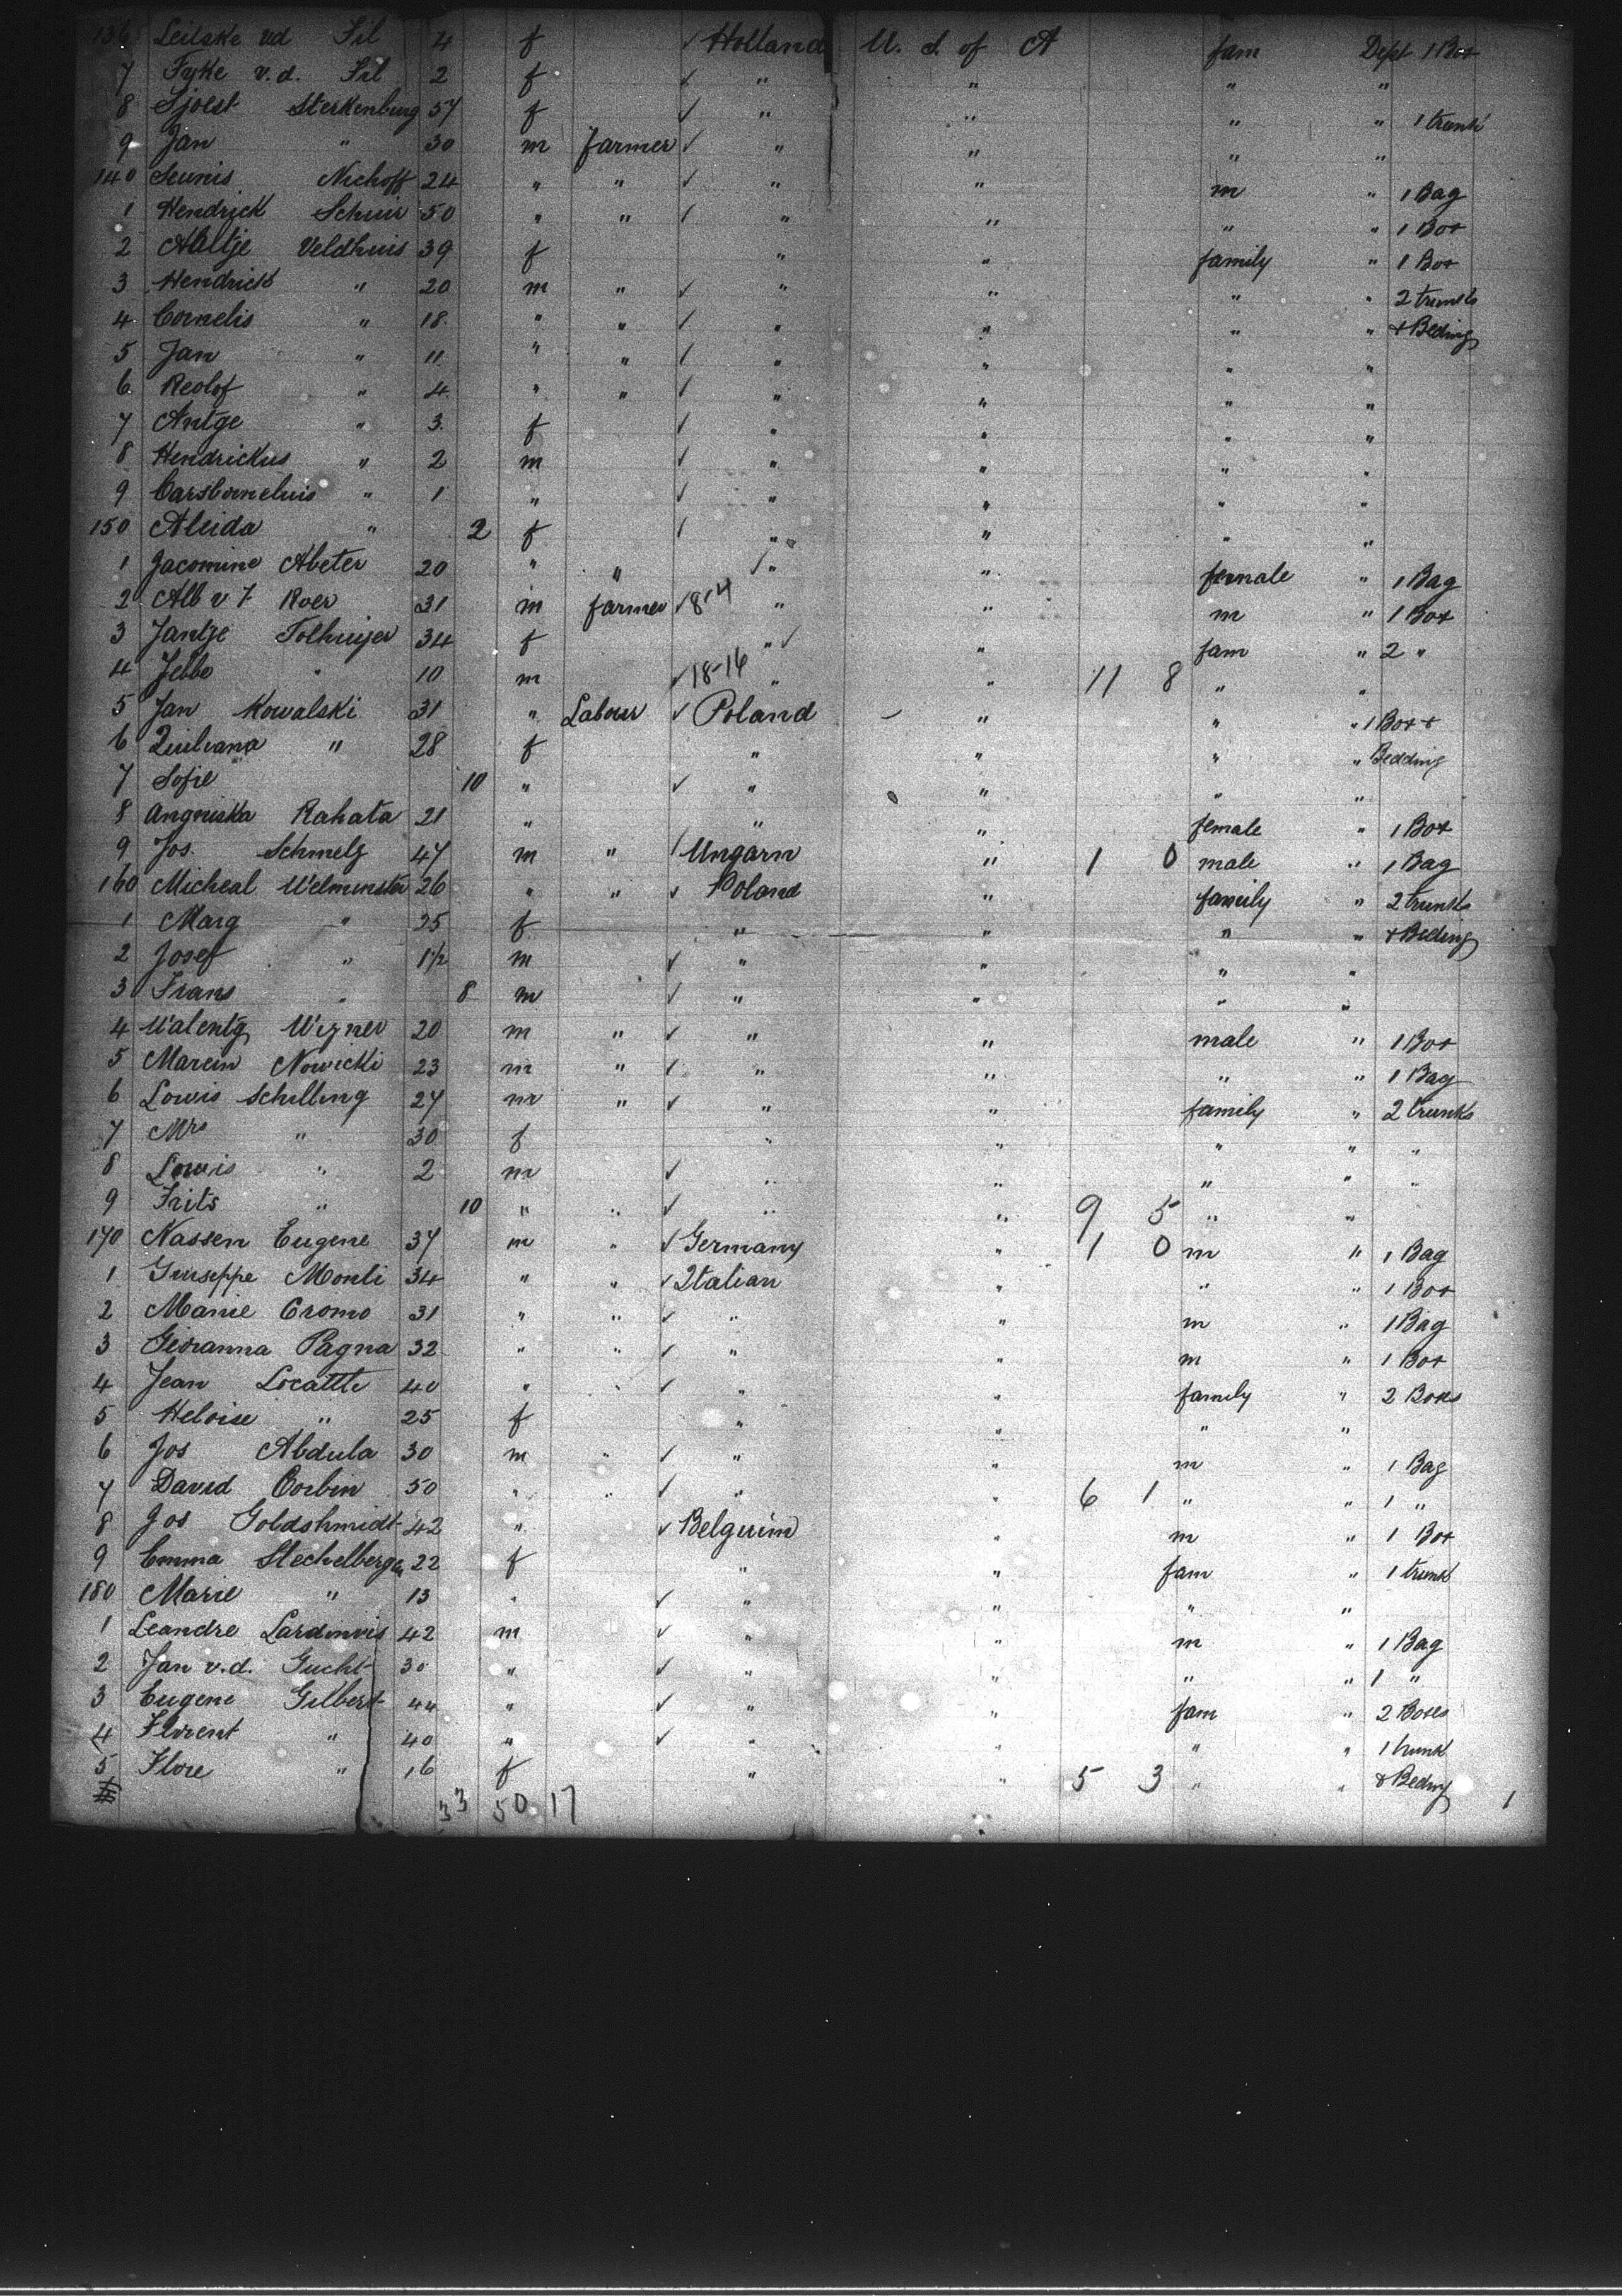 136 Leitske vd Sil 4 f ✓ Holland U. S. of A fam Dept 1 Box
7 Fyke v.d. Sil 2 f ✓ " " " "
8 Sjoest Sterkenburg 57 f ✓ " " " " 1 trunk
9 Jan " 30 m farmer ✓ " " " "
140 Seunis Niehoff 24 " " ✓ " " m " 1 Bag
1 Hendrick Schuir 50 " " / " " " " 1 Box
2 Aaltje Veldhuis 39 f " " family " 1 Box
3 Hendrick " 20 m " ✓ " " " " 2 trunks
4 Cornelis " 18 " " / " " " " + Beding
5 Jan " 11 " " / " " " "
6 Reolof " 4 " " / " " " "
7 Antge " 3 f ✓ " " " "
8 Hendrickus " 2 m ✓ " " " "
9 Carsborneluis " 1 " ✓ " " " "
150 Aleida " 2 f / " " " "
1 Jacomine Abeter 20 " " ✓ " " female " 1 Bag
2 Alb v 7 Roer 31 m farmer ✓ 8-4 " " m " 1 Box
3 Jantje Tolhuijer 34 f " ✓ " fam " 2 "
4 Jebbe " 10 m ✓ 18-16 " " 11 8 " "
5 Jan Kowalski 31 " Labour ✓ Poland " " " 1 Box +
6 Quiliana " 28 f " " " " Bedding
7 Sofie 10 " ✓ " " " "
8 Angniska Rahata 21 " " " female " 1 Box
9 Jos. Schmelz 47 m " / Ungarn " 1 0 male " 1 Bag
160 Micheal Welminster 26 " " ✓ Poland " family " 2 trunks
1 Marg " 25 f " " " " + Beding
2 Josef " 1 1/2 m ✓ " " " "
3 Frans " 8 m ✓ " " " "
4 Walenty Wizner 20 m " ✓ " " male " 1 Box
5 Marcin Nowicki 23 m " / " " " " 1 Bag
6 Lowis Schilling 27 m " ✓ " " family " 2 trunks
7 Mrs " 30 f " " " " "
8 Lowis " 2 m ✓ " " " " "
9 Frits " 10 " " ✓ " " 9 5 " "
170 Nassen Eugene 37 m " ✓ Germany " 1 0 m " 1 Bag
1 Giuseppe Monti 34 " " ✓ Italian " " " 1 Box
2 Manie Cromo 31 " " ✓ " " m " 1 Bag
3 Giovanna Pagna 32 " " / " " m " 1 Box
4 Jean Locatte 40 " " / " " family " 2 Boxes
5 Heloise " 25 f " " " "
6 Jos Abdula 30 m " / " " m " 1 Bag
7 David Corbin 50 " " / " " 6 1 " " 1 "
8 Jos Goldshmidt 42 " ✓ Belguim " m " 1 Box
9 Emma Stechelberger 22 f " " fam " 1 trunk
180 Marie " 13 " ✓ " " " "
1 Leandre Lardinvis 42 m ✓ " " m " 1 Bag
2 Jan v.d. Gucht 30 " ✓ " " " " 1 "
3 Eugene Gilbert 44 " ✓ " " fam " 2 Boxes
4 Florent " 40 " ✓ " " " " 1 trunk
5 Flore " 16 f " " 5 3 " " & Beding
33 50 17 1